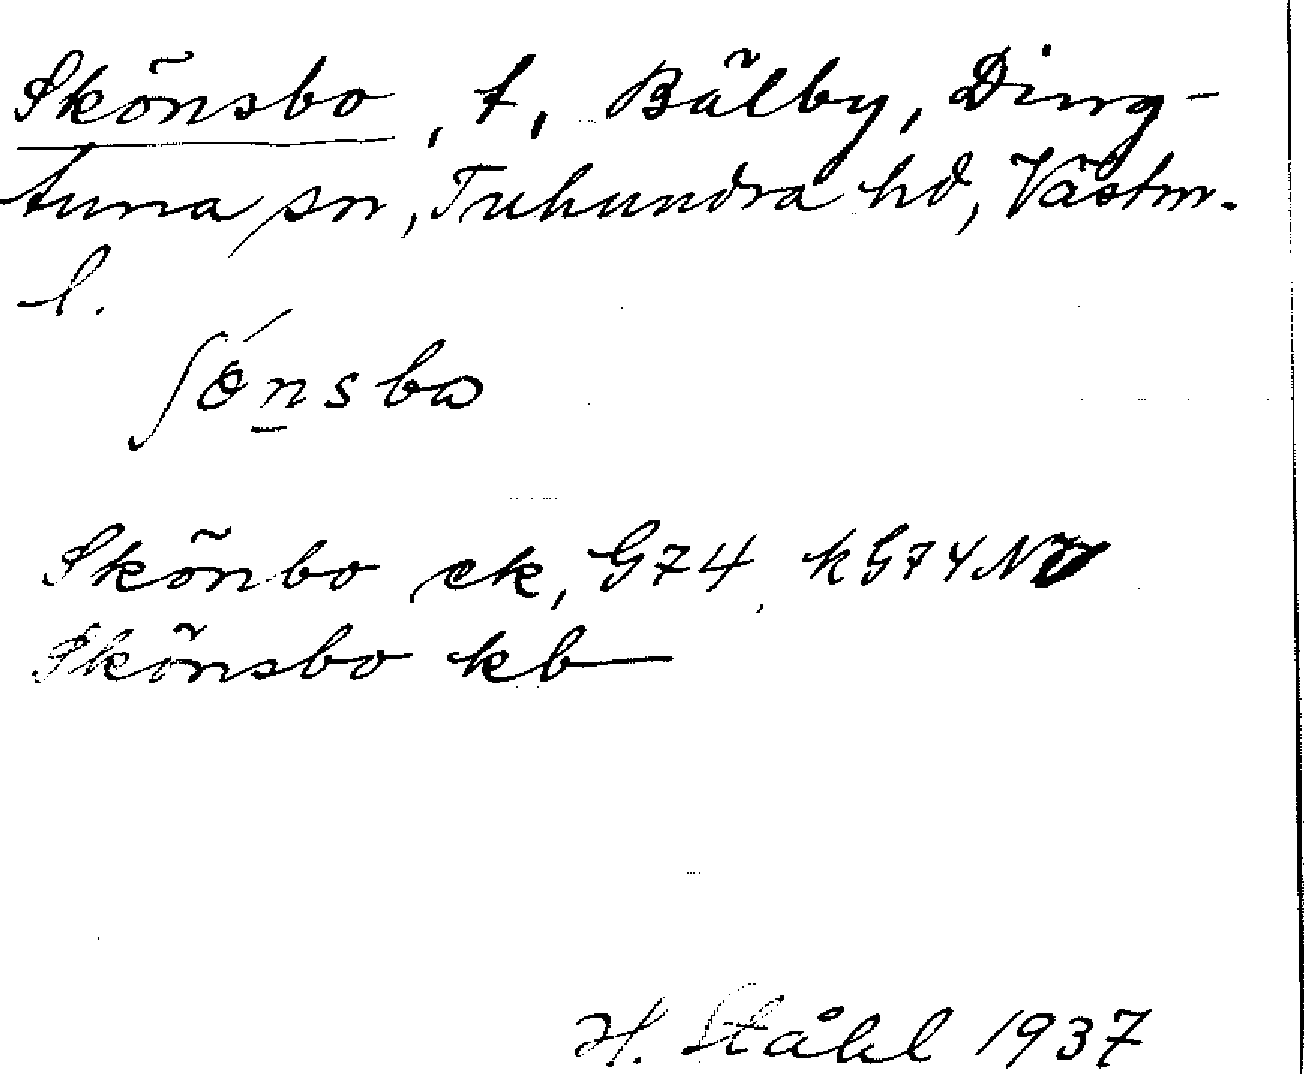 Skönsbo, t, Bälby, Ding-
tuna sn, Tuhundra hd, Västm.
l.
ʃö́n̲sbo
Skönbo ek, G74, kG74NV
Skönsbo kb
H. Ståhl 1937